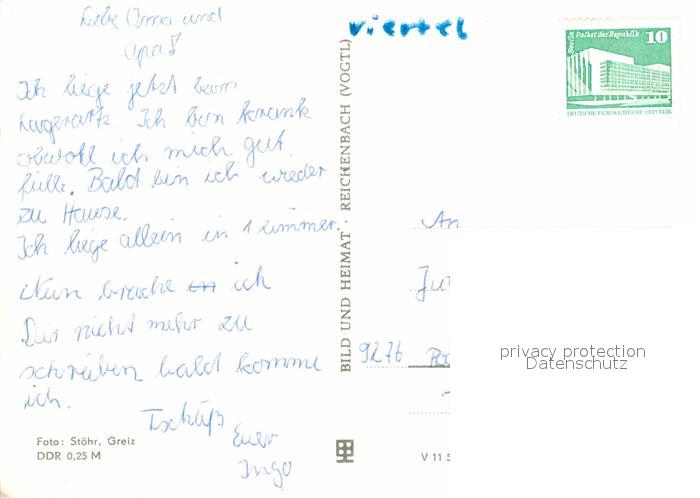 Liebe Oma und
Opa!
Ich liege jetzt beim
Lagerarzt. Ich bin krank
obwohl ich mich gut
fülle. Bald bin ich wieder
zu Hause.
Ich liege allein in 1 Zimmer.
Nun brache ich
Dir nicht mehr zu
schrieben bald komme
ich.
Tschüß
Euer
Ingo
Foto: Stöhr, Greiz
DDR 0,25 M
BILD UND HEIMAT · REICHENBACH (VOGTL)
viertel
Berlin Palast der Republik 10
DEUTSCHE DEMOKRATISCHE REPUBLIK
An
Jut
9276
privacy protection
Datenschutz
V 11 5